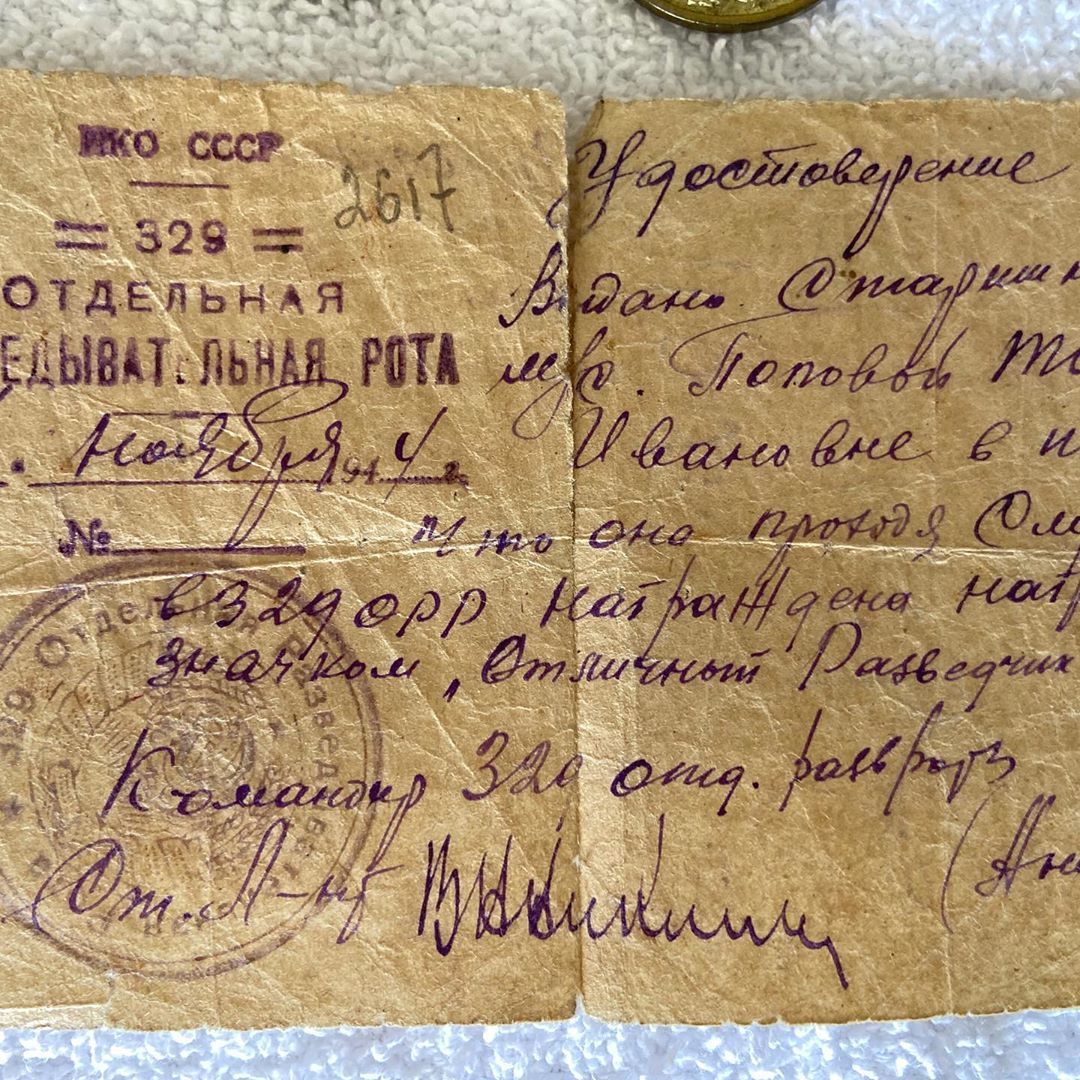 НКО СССР
2617
= 329 =
ОТДЕЛЬНАЯ
ЕДЫВАТЕЛЬНАЯ РОТА
Ноября 1944 г.
№
Удостоверение
Выдано Старшин
м/с. Поповой
Ивановне в
что она проходя
в 329 орр награждена наг
значком „Отличный Разведчик
Командир 329 отд. разв роты
Ст. Л-нт
329 Отдельная Развед